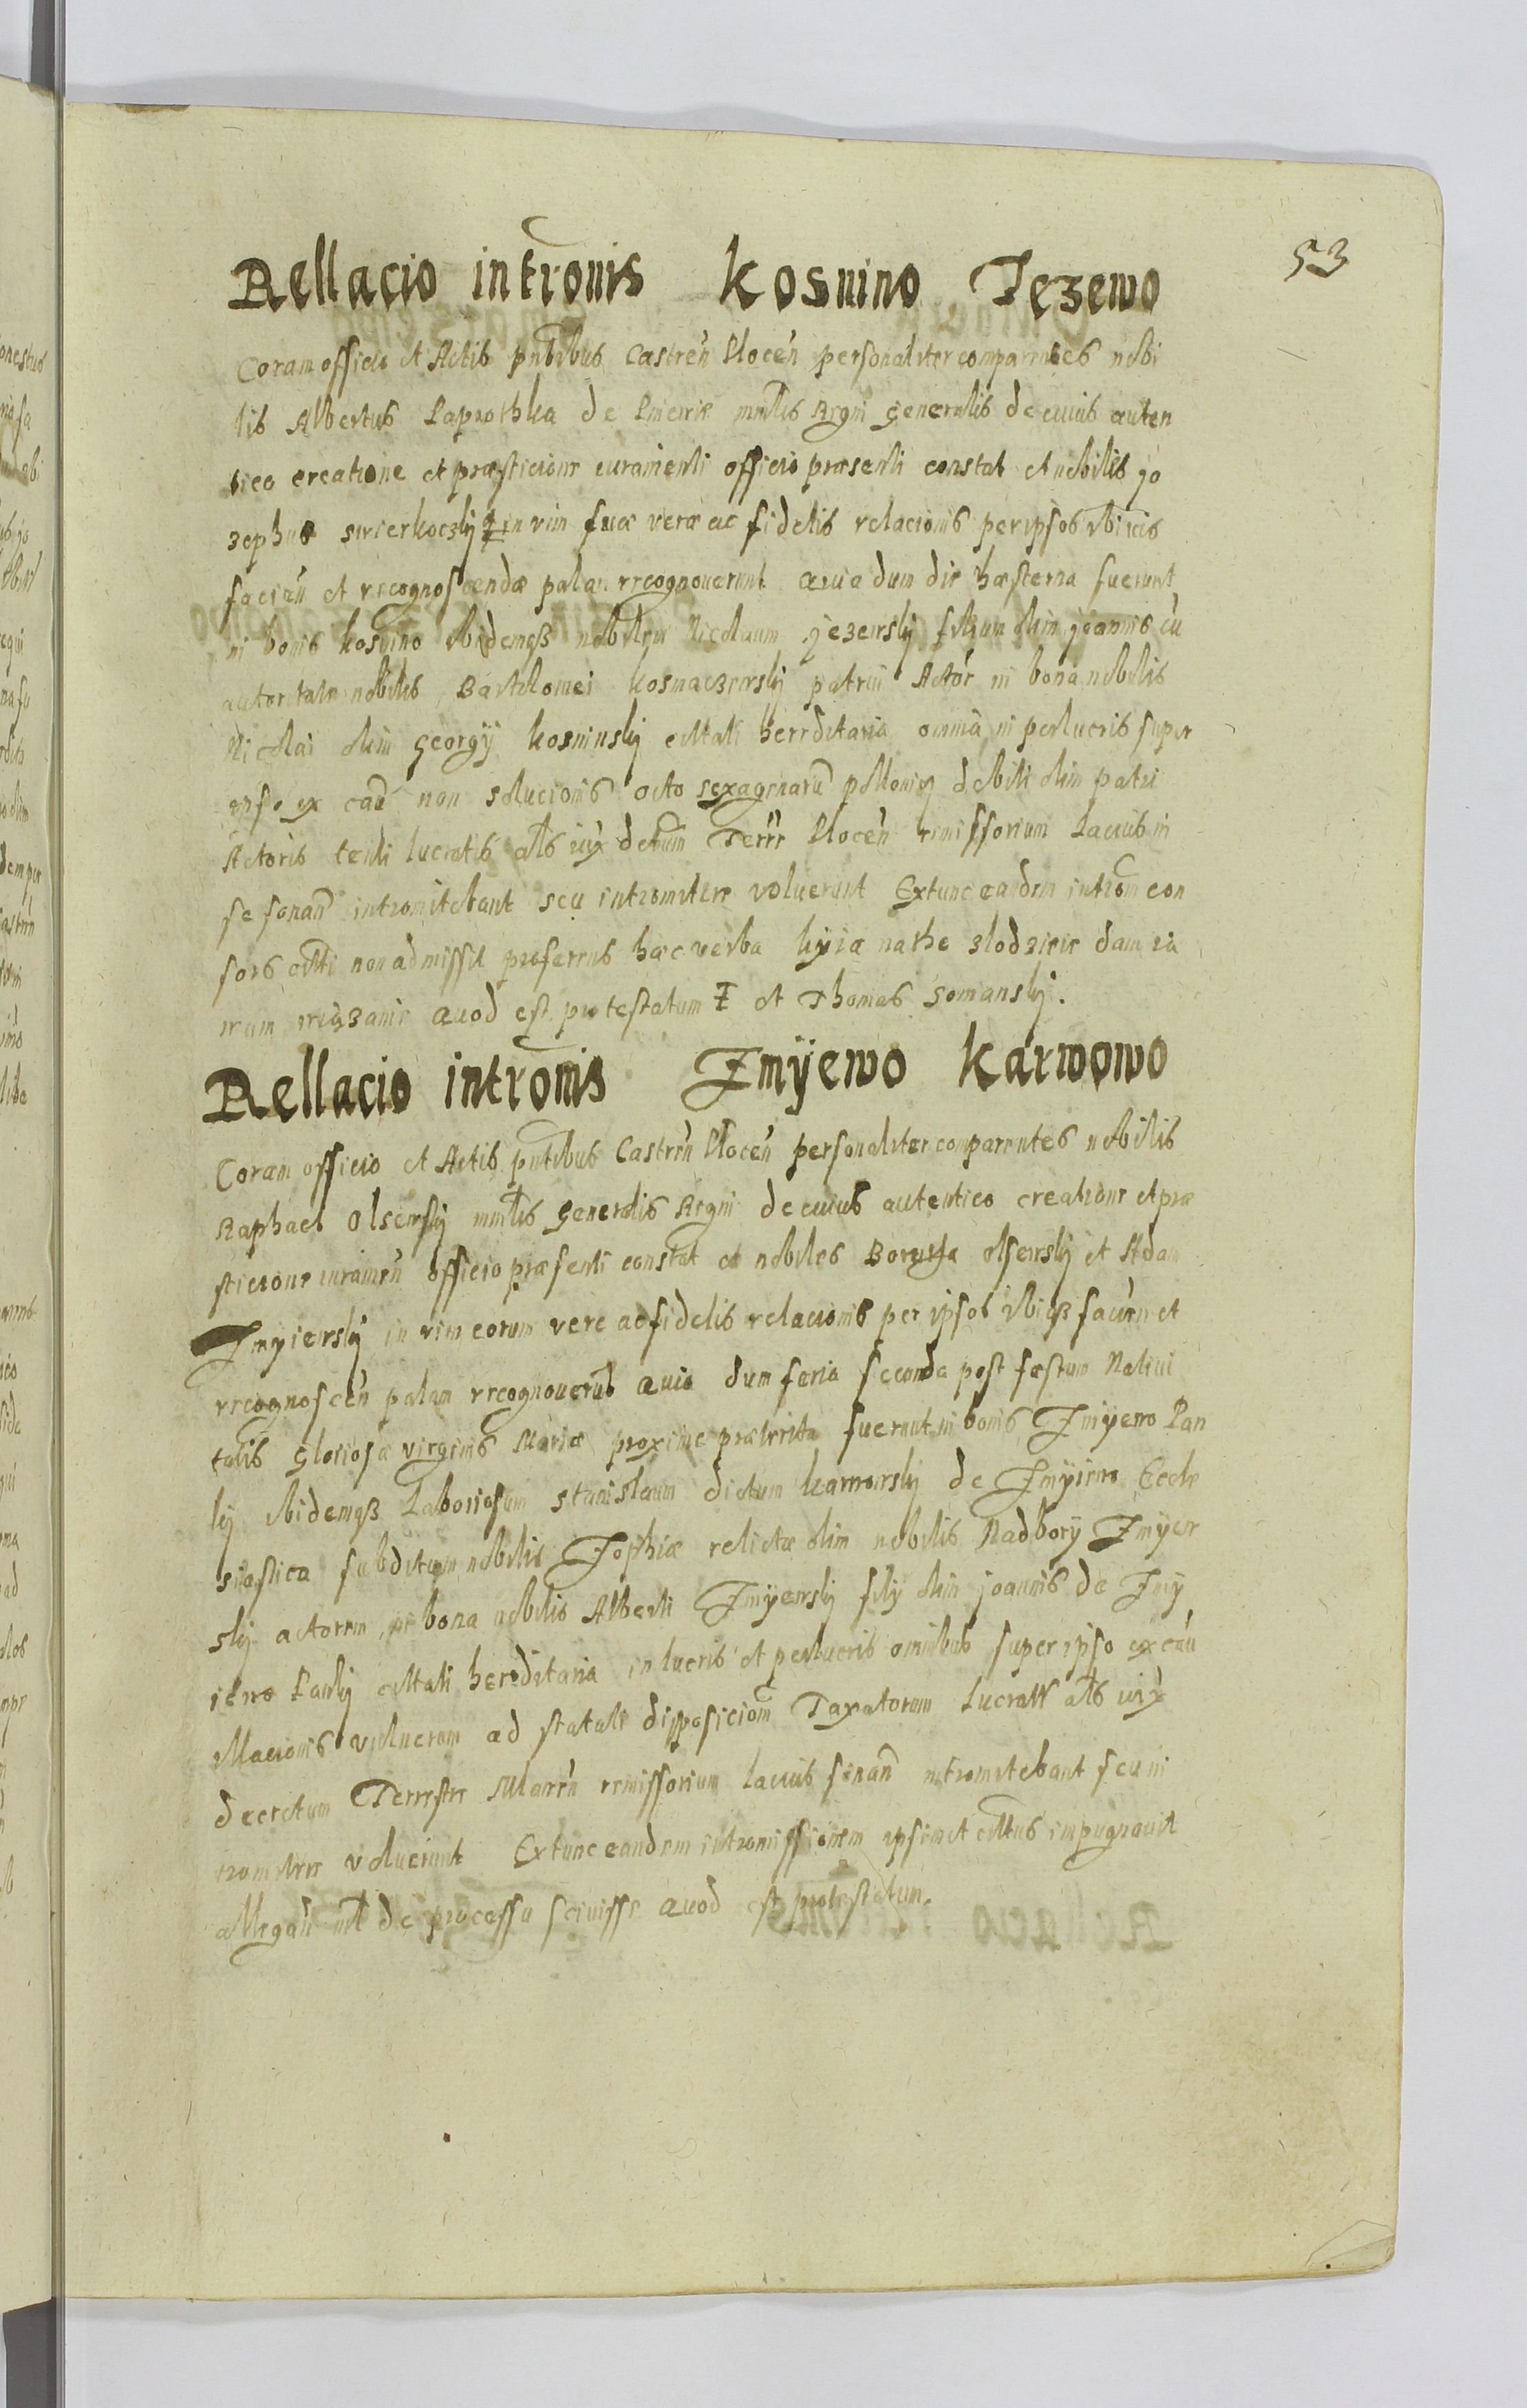 53
Rellacio intromis Kosnino Jezewo
Coram officio et Actis pntibus Castren Plocen personaliter comparentes nobi
lis Albertus Paprothka de mnlis Regni generalis de cuius auten
tico creatione et præsticione iuramenti officio præsenti constat et nobilis Jo
zephus swierkoczskÿ in vim suæ veræ ac fidelis relacionis per ipsos
facien et recognoscendæ palam recognouerunt quia dum die hæsterna fuerunt
in bonis Kosnino ibidemqß nobilem Nicolaum Jezewskÿ filium olim Joannis cu
autoritate nobilis Bartolomei patrui Actor in bona nobilis
Nicolai olim Georgÿ Kosninskÿ cittati herreditaria omnia in perlucris super
ipso ex cau non solucionis octo sexagenaru debiti olim patri
Actoris lucratis als iux decrum Terre Plocen remissorium Lacius in
se sonan intromitebant seu intromitere voluerunt Extunc eandem introm con
sors citti non admissit proferens hæc verba na the zlodzieie dam
quod est protestatum et Thomas Somianskÿ.
Rellacio intromis Zmÿewo Karwowo
Coram officio et Actis pntibus Castren Plocen personaliter comparentes nobilis
Raphael Olsewskÿ mnlis generalis Regni de cuius autentico creatione et præ
sticione iuramen officio præsenti constat et nobiles olsewskÿ et Adam
Zmyiewskÿ in vim eorum vere ac fidelis relacionis per ipsos facien et
recognoscen palam recognouerut quia dum feria seconda post fæstum Natiui
tatis gloriosæ virginis Mariæ proxime præterita fuerunt in bonis Zmÿewo Pan
kÿ ibidemqß Laboriosum stanislaum dictum karwowskÿ de Zmÿiewo Eccle
siastica subditum nobilis Zophiæ relictæ olim nobilis Nadborÿ Zmÿew
skÿ actorem in bona nobilis Alberti Zmÿewskÿ filÿ olim Joannis de Zmÿ
iewo Pankÿ cittati hereditaria in lucris et perlucris omnibus super ipso ex cau
illacionis vulnerom ad statuti dispositiom Taxatorum Lucratt als iux
decretum Terrestre remissorium lacius sonan intromitebant seu in
tromitere voluerunt Extunc eandem intromissionem ipsimet cittus impugnauit
allegan nil de processu sciuisse quod est protestatum.